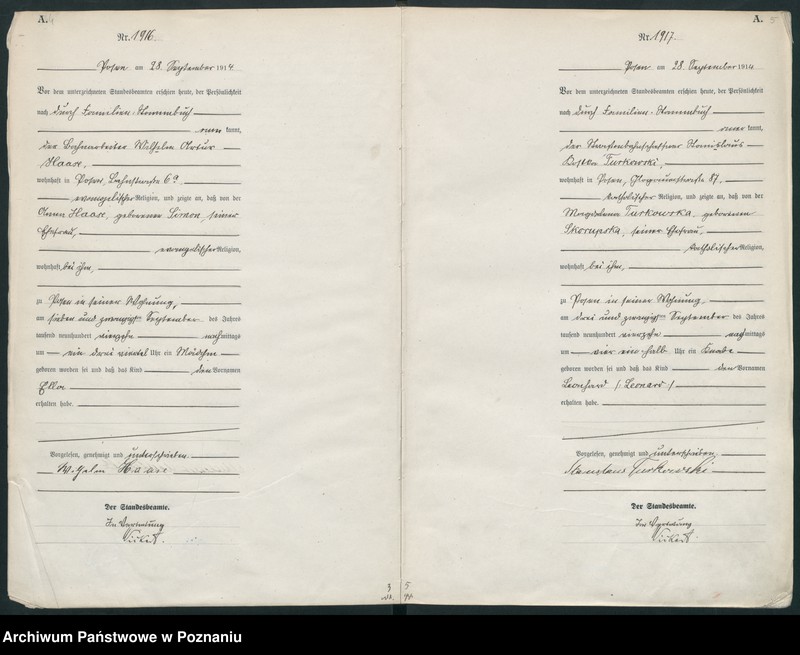 A. 4
Nr. 1916.
Posen am 28. September 1914
Vor dem unterzeichneten Standesbeamten erschien heute, der Persönlichkeit
nach durch Familien-Stammbuch
kannt,
der Bahnarbeiter Wilhelm Artur
Haase,
wohnhaft in Posen, Bahnstraße 6a,
evangelischer Religion, und zeigte an, daß von der
Anna Haase, geborenen Simon, seiner
Ehefrau,
evangelischer Religion,
wohnhaft bei ihm,
zu Posen in seiner Wohnung,
am sieben und zwanzigsten September des Jahres
tausend neunhundert vierzehn nachmittags
um ein drei viertel Uhr ein Mädchen
geboren worden sei und daß das Kind den Vornamen
Ella
erhalten habe.
Vorgelesen, genehmigt und unterschrieben.
Haase
Der Standesbeamte.
In Vertretung
A. 5
Nr. 1917.
Posen am 28. September 1914
Vor dem unterzeichneten Standesbeamten erschien heute, der Persönlichkeit
nach durch Familien-Stammbuch
kannt,
der Straßenbahnschaffner Stanislaus
Turkowski,
wohnhaft in Posen, 87,
katholischer Religion, und zeigte an, daß von der
Magdalena Turkowska, geborenen
Skorupska, seiner Ehefrau,
katholischer Religion,
wohnhaft bei ihm,
zu Posen in seiner Wohnung,
am drei und zwanzigsten September des Jahres
tausend neunhundert vierzehn nachmittags
um vier ein halb Uhr ein Knabe
geboren worden sei und daß das Kind den Vornamen
Leonhard /: Leonard :/
erhalten habe.
Vorgelesen, genehmigt und unterschrieben.
Stanislaus Turkowski
Der Standesbeamte.
In Vertretung
3 5
Archiwum Państwowe w Poznaniu